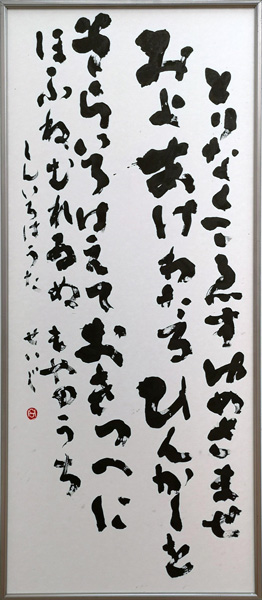 とりなくこゑすゆめさませ
みよあけわたるひんかしを
そらいろはえておきつへに
ほふねむれゐぬもやのうち
しんいろはうた せいがく